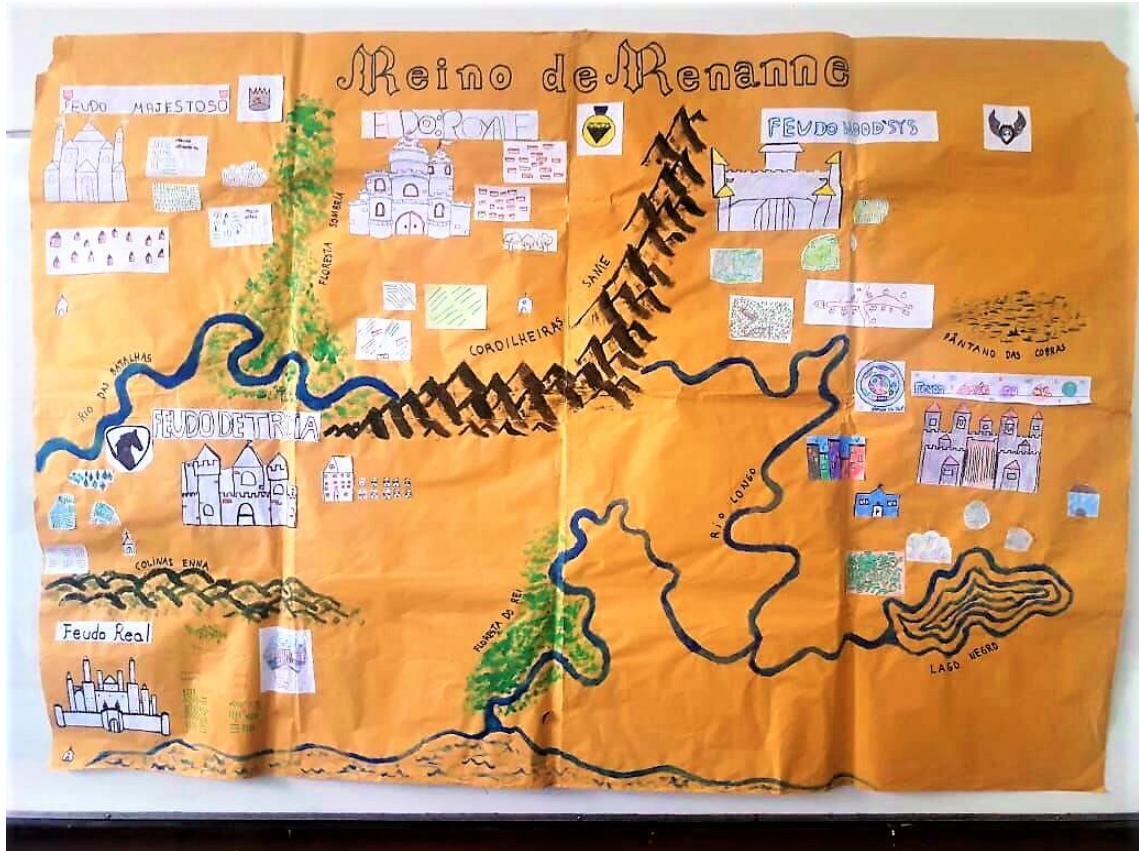 Reino de Renanne
FEUDO MAJESTOSO
FEUDO ROYALE
FEUDO
FLORESTA SOMBRIA
CORDILHEIRAS SANIE
PÂNTANO DAS COBRAS
RIO DAS BATALHAS
FEUDO DE TROIA
RIO LONGO
COLINAS ENNA
FLORESTA DO REI
Feudo Real
LAGO NEGRO